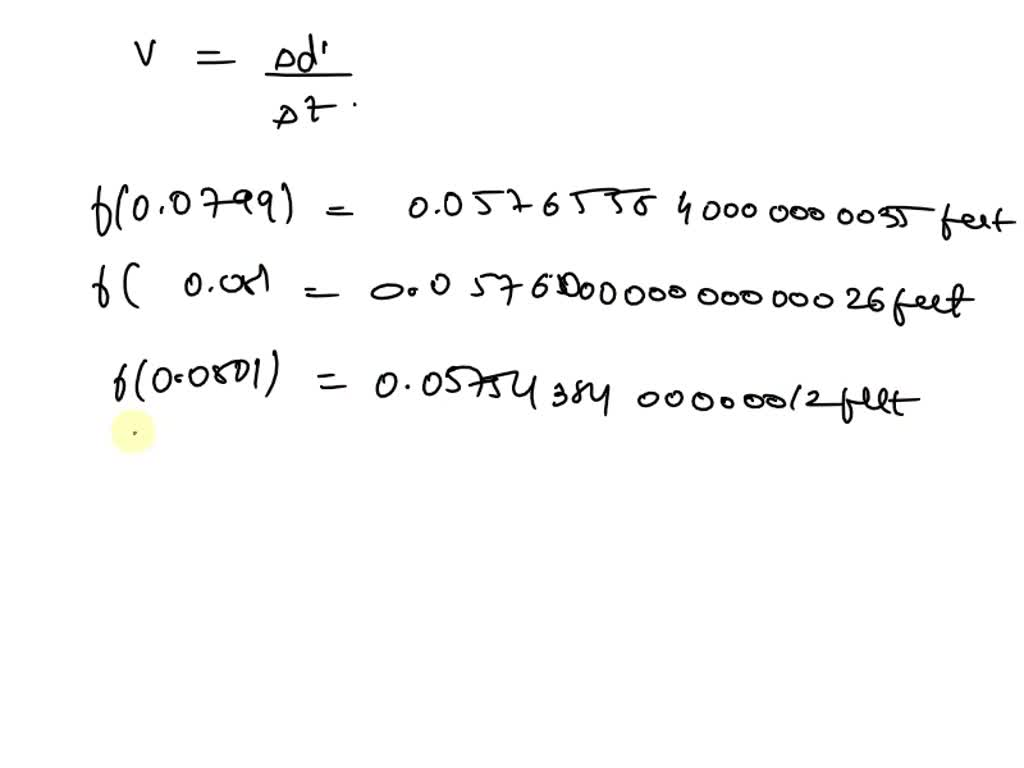 V = Δd'
Δt.
f(0.0799) = 0.0576556 4000 000 0055 feet
f( 0.081 = 0.0576000000000000026 feet
f(0.0801) = 0.05754 384 00000012 feet